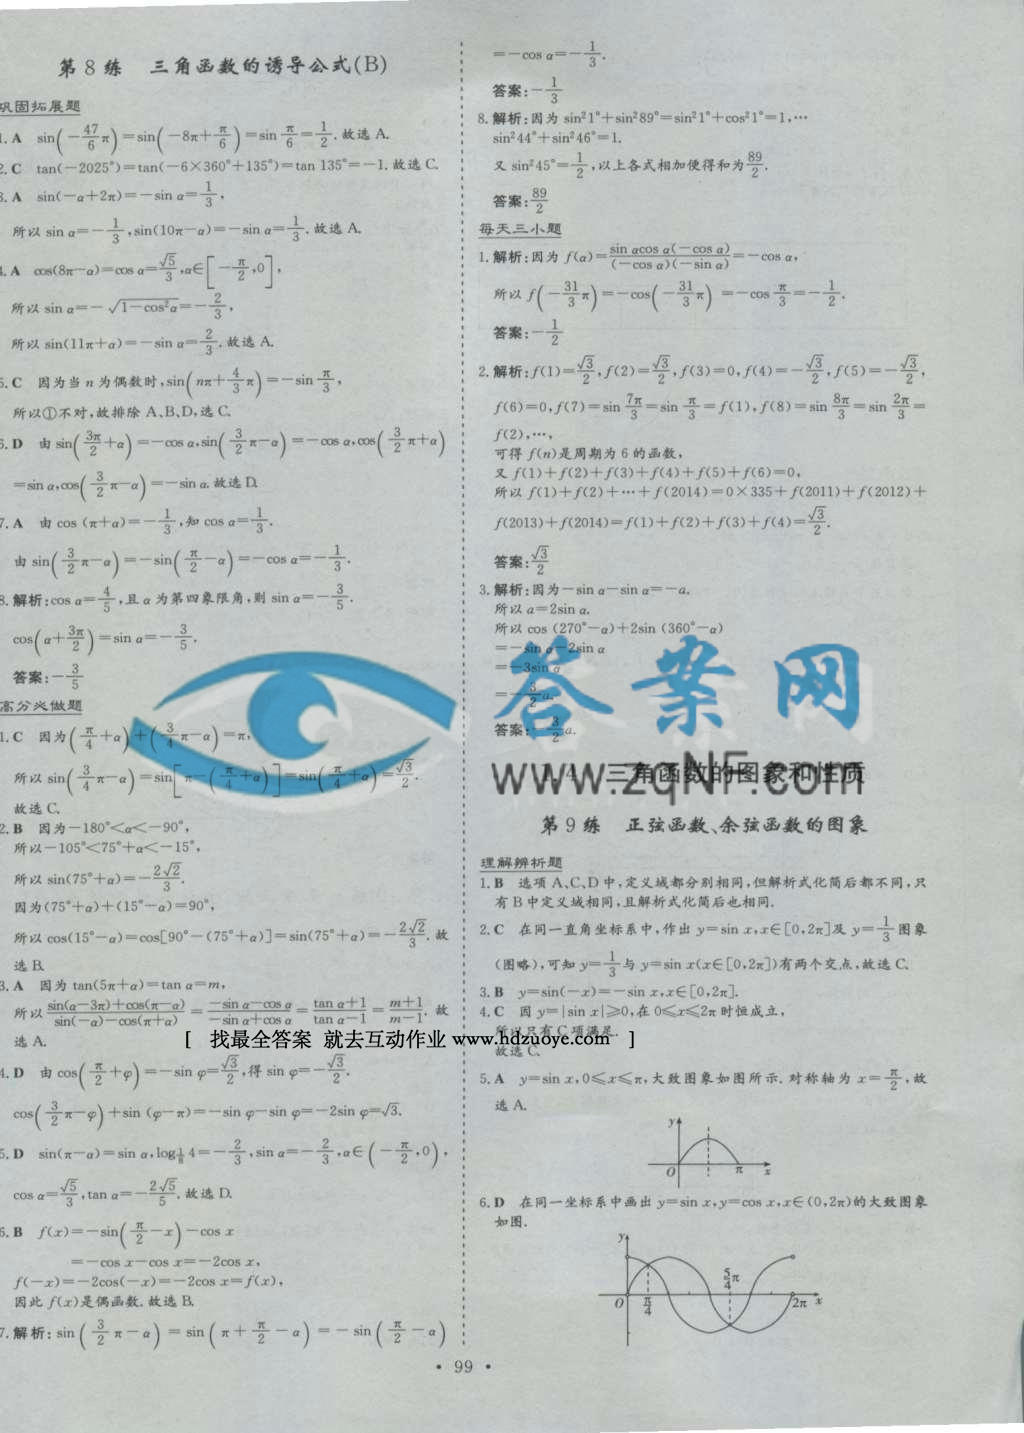 第8练 三角函数的诱导公式(B)
巩固拓展题
1. A sin(-47/6 π)=sin(-8π+π/6)=sin π/6=1/2. 故选A.
2. C tan(-2025°)=tan(-6×360°+135°)=tan 135°=-1. 故选C.
3. A sin(-α+2π)=-sin α=1/3,
所以 sin α=-1/3,sin(10π-α)=-sin α=1/3. 故选A.
4. A cos(8π-α)=cos α=√5/3,α∈[-π/2,0],
所以 sin α=-√(1-cos²α)=-2/3,
所以 sin(11π+α)=-sin α=2/3. 故选A.
5. C 因为当 n 为偶数时,sin(nπ+4/3 π)=-sin π/3,
所以①不对,故排除 A、B、D,选C.
6. D 由 sin(3π/2+α)=-cos α,sin(3/2 π-α)=-cos α,cos(3/2 π+α)
=sin α,cos(3/2 π-α)=-sin α. 故选D.
7. A 由 cos (π+α)=-1/3,知 cos α=1/3.
由 sin(3/2 π-α)=-sin(π/2-α)=-cos α=-1/3.
8. 解析:cos α=4/5,且 α 为第四象限角,则 sin α=-3/5.
cos(α+3π/2)=sin α=-3/5.
答案:-3/5
高分必做题
1. C 因为(π/4+α)+(3/4 π-α)=π,
所以 sin(3/4 π-α)=sin[π-(π/4+α)]=sin(π/4+α)=√3/2.
故选C.
2. B 因为-180°<α<-90°,
所以-105°<75°+α<-15°,
所以 sin(75°+α)=-2√2/3.
因为(75°+α)+(15°-α)=90°,
所以 cos(15°-α)=cos[90°-(75°+α)]=sin(75°+α)=-2√2/3. 故
选B.
3. A 因为 tan(5π+α)=tan α=m,
所以 (sin(α-3π)+cos(π-α))/(sin(-α)-cos(π+α))=(-sin α-cos α)/(-sin α+cos α)=(tan α+1)/(tan α-1)=(m+1)/(m-1). 故
选A.
4. D 由 cos(π/2+φ)=-sin φ=√3/2,得 sin φ=-√3/2.
cos(3/2 π-φ)+sin (φ-π)=-sin φ-sin φ=-2sin φ=√3.
5. D sin(π-α)=sin α,log_(1/8) 4=-2/3,sin α=-2/3,α∈(-π/2,0),
cos α=√5/3,tan α=-2√5/5. 故选D.
6. B f(x)=-sin(π/2-x)-cos x
=-cos x-cos x=-2cos x,
f(-x)=-2cos(-x)=-2cos x=f(x),
因此 f(x)是偶函数. 故选B.
7. 解析:sin(3/2 π-α)=sin(π+π/2-α)=-sin(π/2-α)
=-cos α=-1/3.
答案:-1/3
8. 解析:因为 sin²1°+sin²89°=sin²1°+cos²1°=1,…
sin²44°+sin²46°=1.
又 sin²45°=1/2,以上各式相加便得和为89/2.
答案:89/2
每天三小题
1. 解析:因为 f(α)=(sin αcos α(-cos α))/((-cos α)(-sin α))=-cos α,
所以 f(-31/3 π)=-cos(-31/3 π) =-cos π/3=-1/2.
答案:-1/2
2. 解析:f(1)=√3/2,f(2)=√3/2,f(3)=0,f(4)=-√3/2,f(5)=-√3/2,
f(6)=0,f(7)=sin 7π/3=sin π/3=f(1),f(8)=sin 8π/3=sin 2π/3=
f(2),…,
可得 f(n)是周期为 6 的函数,
又 f(1)+f(2)+f(3)+f(4)+f(5)+f(6)=0,
所以 f(1)+f(2)+…+f(2014)=0×335+f(2011)+f(2012)+
f(2013)+f(2014)=f(1)+f(2)+f(3)+f(4)=√3/2.
答案:√3/2
3. 解析:因为-sin α-sin α=-a.
所以 a=2sin α.
所以 cos (270°-α)+2sin (360°-α)
=-sin α-2sin α
=-3sin α
=-3/2 a.
答案:-3/2 a.
答案网
www.zqNF.com
1.4 三角函数的图象和性质
第9练 正弦函数、余弦函数的图象
理解辨析题
1. B 选项A、C、D中,定义域都分别相同,但解析式化简后都不同,只
有B中定义域相同,且解析式化简后也相同.
2. C 在同一直角坐标系中,作出 y=sin x,x∈[0,2π]及 y=1/3图象
(图略),可知 y=1/3与 y=sin x(x∈[0,2π])有两个交点,故选C.
3. B y=sin(-x)=-sin x,x∈[0,2π].
4. C 因 y=|sin x|≥0,在 0≤x≤2π 时恒成立,
所以只有C项满足.
故选C.
[ 找最全答案 就去互动作业 www.hdzuoye.com ]
5. A y=sin x,0≤x≤π,大致图象如图所示. 对称轴为 x=π/2,故
选A.
y
O π x
6. D 在同一坐标系中画出 y=sin x,y=cos x,x∈(0,2π)的大致图象
如图.
y
5/4 π
O π/4 2π x
• 99 •